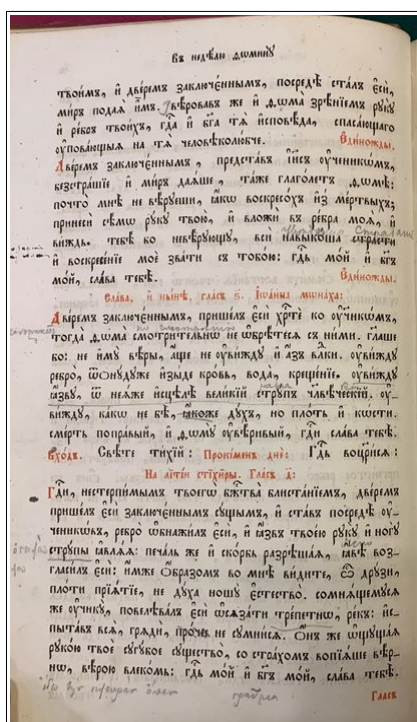 Въ недѣлю ѳомину
твои́мъ, и҆ две́ремъ заключє́ннымъ, посредѣ̀ ста́лъ є҆сѝ,
ми́ръ подаѧ̀ и҆̀мъ. Увѣ́ровавъ же и҆ ѳѡма̀ зрѣ́нїемъ рꙋкꙋ̀
и҆ ре́бръ твои́хъ, гдⷭ҇а и҆ бг҃а тѧ̀ и҆сповѣ́да, спаса́ющаго
ᲂу҆пова́ющыѧ на тѧ̀ человѣколю́бче. Е҆ди́ножды.
Две́ремъ заключє́ннымъ, предста́въ і҆и҃съ ᲂу҆ченикѡ́мъ,
безстра́шїе и҆ ми́ръ даѧ́ше, та́же глаго́летъ ѳѡмѣ̀:
почто̀ мнѣ̀ не вѣ́рꙋеши, ꙗ҆́кѡ воскресо́хъ и҆з̾ ме́ртвыхъ;
принесѝ сѣ́мѡ рꙋ́кꙋ твою̀, и҆ вложѝ въ ре́бра моѧ̑, и҆
ви́ждь. тебѣ́ бо невѣ́рꙋющꙋ, всѝ навыко́ша стра́сти
и҆ воскресе́нїе моѐ зва́ти съ тобо́ю: гдⷭ҇ь мо́й и҆ бг҃ъ
мо́й, сла́ва тебѣ̀. Е҆ди́ножды.
Сла́ва, и҆ ны́нѣ, гла́съ ѕ҃. І҆ѡа́нна мона́ха:
Две́ремъ заключє́ннымъ, прише́лъ є҆сѝ хрⷭ҇тѐ ко ᲂу҆ченикѡ́мъ,
тогда̀ ѳѡма̀ смотри́тельнѡ не ѡ҆брѣ́тесѧ съ ни́ми. гл҃аше
бо: не и҆мꙋ̀ вѣ́ры, а҆́ще не ᲂу҆ви́ждꙋ и҆ а҆́зъ влⷣки. ᲂу҆ви́ждꙋ
ребро̀, ѿню́дꙋже и҆зы́де кро́вь, вода̀, креще́нїе. ᲂу҆ви́ждꙋ
ꙗ҆́звꙋ, ѿ неѧ́же и҆сцѣлѣ̀ вели́кїй стрꙋ́пъ чл҃вѣ́ческїй. ᲂу҆-
ви́ждꙋ, ка́кѡ не бѣ̀, ꙗ҆́коже дꙋ́хъ, но пло́ть и҆ кѡ́сти.
сме́рть попра́вый, и҆ ѳѡмꙋ̀ ᲂу҆вѣ́ривый, гдⷭ҇и сла́ва тебѣ̀.
Вхо́дъ. Свѣ́те ти́хїй: Проки́менъ днѐ: Гдⷭ҇ь воцр҃и́сѧ:
На лїті́и стїхи̑ры. Гла́съ д҃:
Гдⷭ҇и, нестерпи́мымъ твоегѡ̀ бж҃тва̀ блиста́нїемъ, две́ремъ
прише́лъ є҆сѝ заключє́ннымъ сꙋ́щымъ, и҆ ста́въ посредѣ̀ ᲂу҆-
ченикѡ́въ, ребро̀ ѡ҆бнажи́лъ є҆сѝ, и҆ ꙗ҆́звъ твое́ю рꙋкꙋ̀ и҆ но́гꙋ
стрꙋ́пы ꙗ҆влѧ́ѧ: печа́ль же и҆ ско́рбь разрѣша́ѧ, ꙗ҆́вѣ воз-
гласи́лъ є҆сѝ: и҆́мже ѻ҆́бразомъ во мнѣ̀ ви́дите, ѽ дрꙋ́зи,
пло́ти прїѧ́тїе, не дꙋ́ха ношꙋ̀ є҆стество̀. сомнѧ́ющемꙋсѧ
же ᲂу҆чн҃кꙋ̀, повелѣва́лъ є҆сѝ ѡ҆сѧза́ти тре́петнѡ, ре́къ: и҆с-
пыта́въ всѧ̑, грѧдѝ, про́чее не сꙋмни́сѧ. Ѻ҆́нъ же ѡ҆щꙋща́ѧ
рꙋко́ю твоѐ сꙋгꙋ́бое сꙋщество̀, со стра́хомъ вопїѧ́ше вѣ́р-
нѡ, вѣ́рою влеко́мь: гдⷭ҇ь мо́й и҆ бг҃ъ мо́й, сла́ва тебѣ̀.
Гла́съ